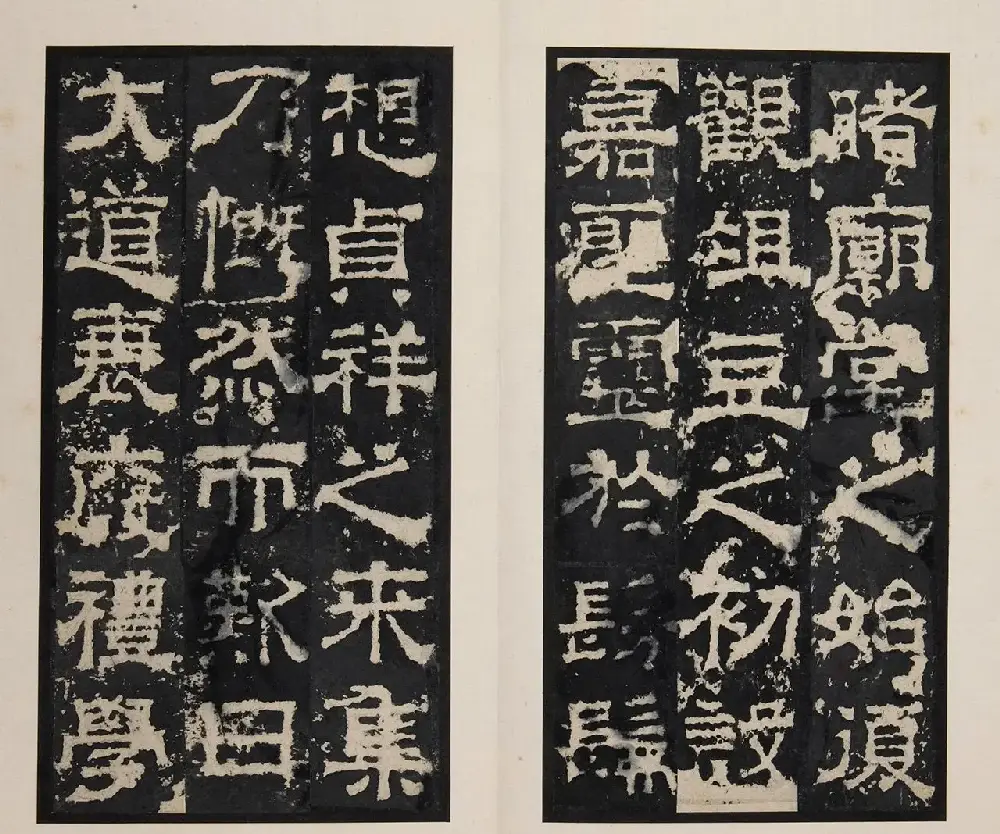 睹廟堂之始復
觀俎豆之初設
嘉靈於髣髴
想貞祥之来集
乃慨然而歎曰
大道衰廢禮學